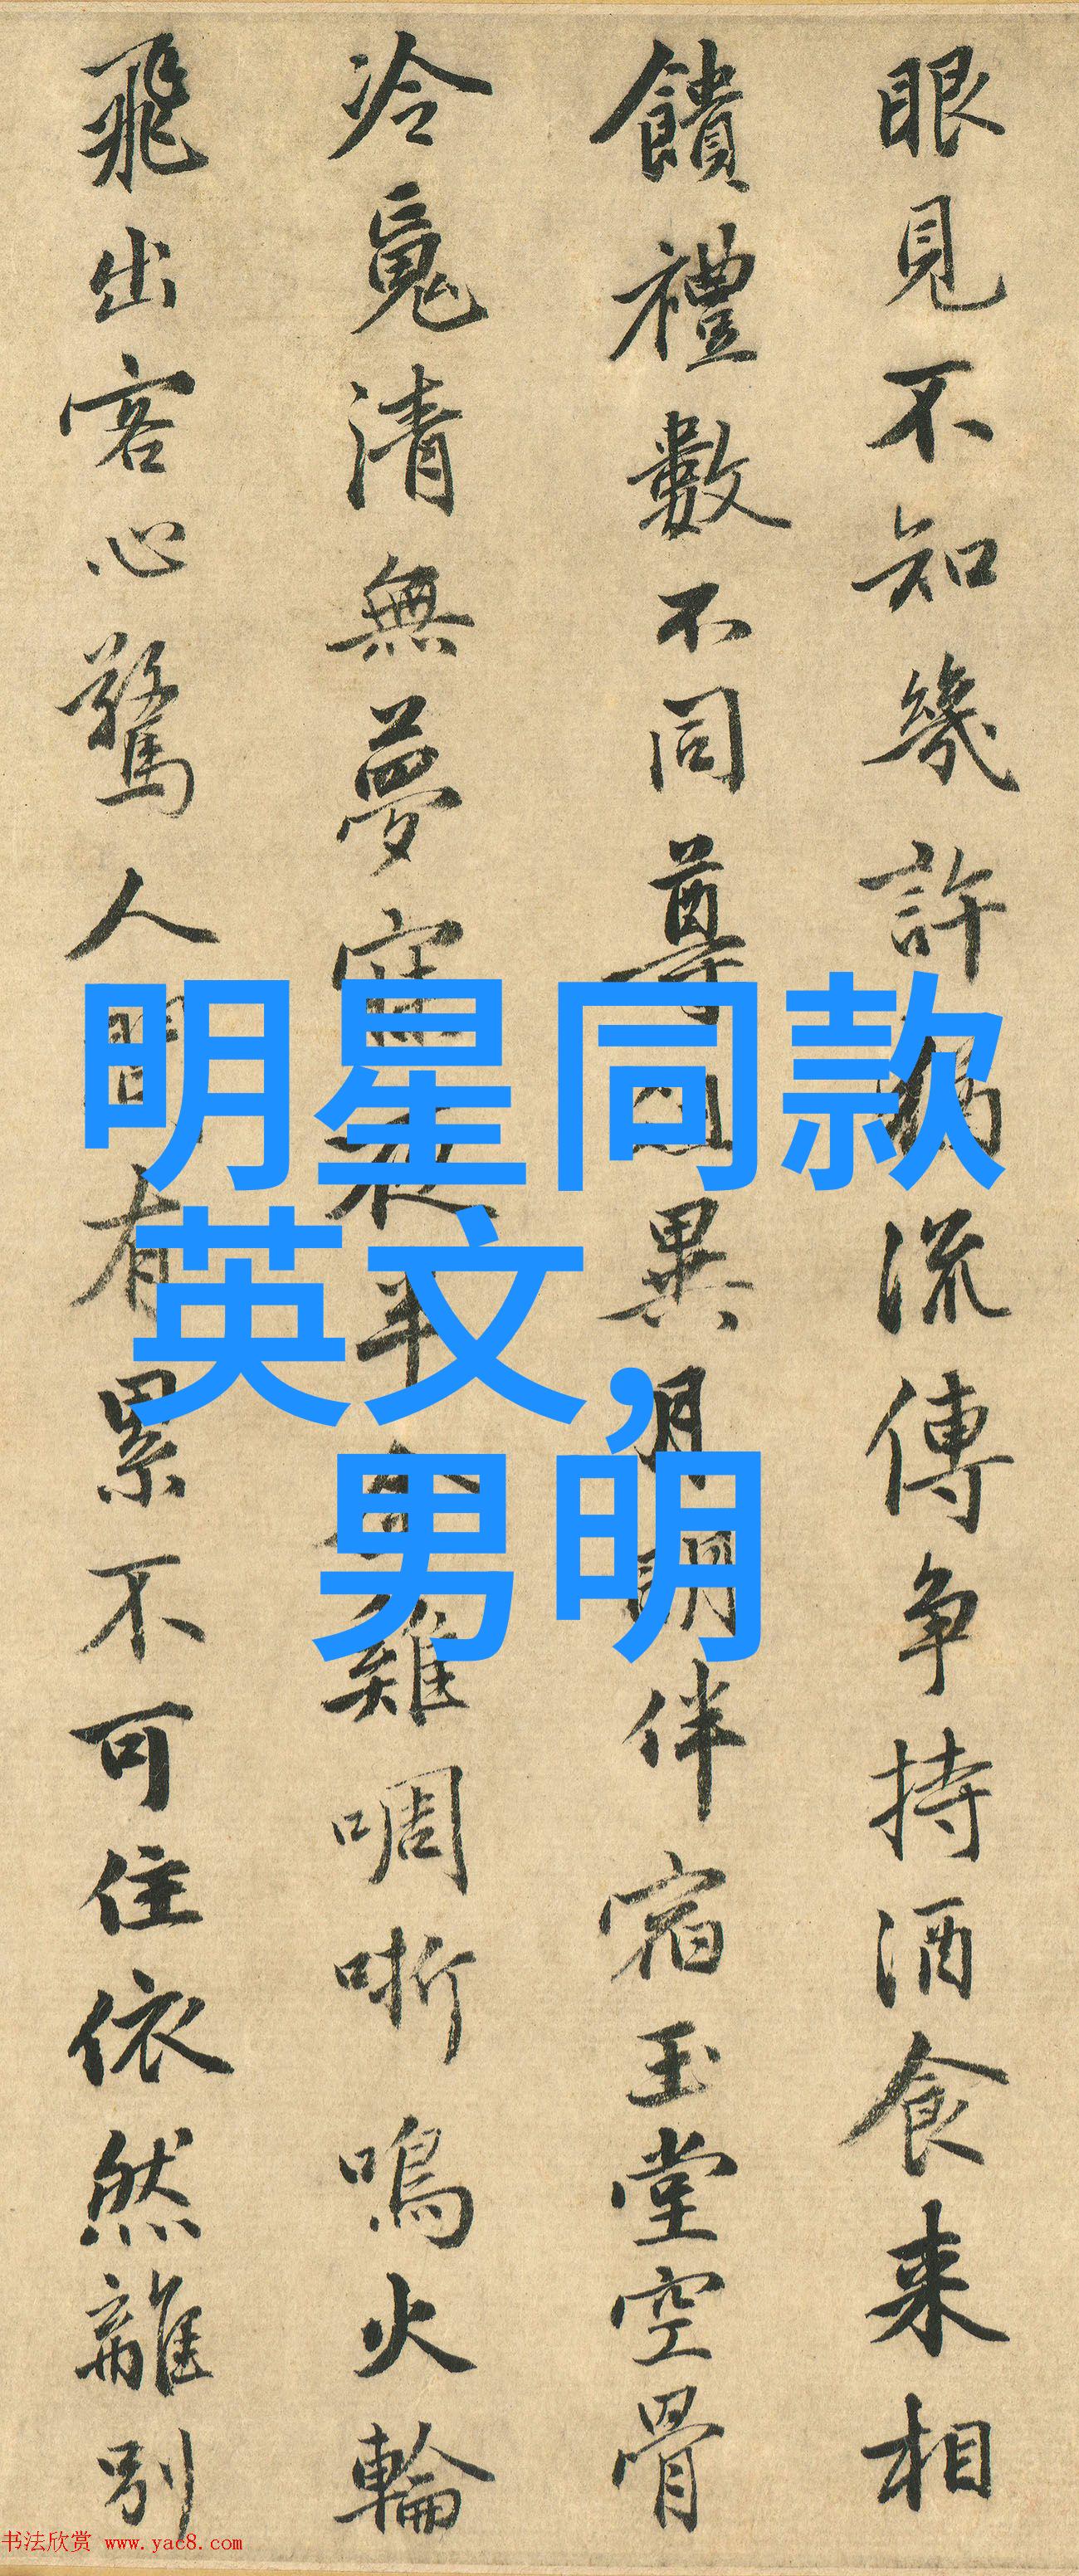 眼見不知幾許猶流傳争持酒食来相
饋禮數不同尊俎異月明伴宿玉堂空骨
冷魂清無夢寐夜半金雞啁哳鳴火輪
飛出客心驚人間有累不可住依然離別
明星同款
英文，
男明
书法欣赏 www.yac8.com